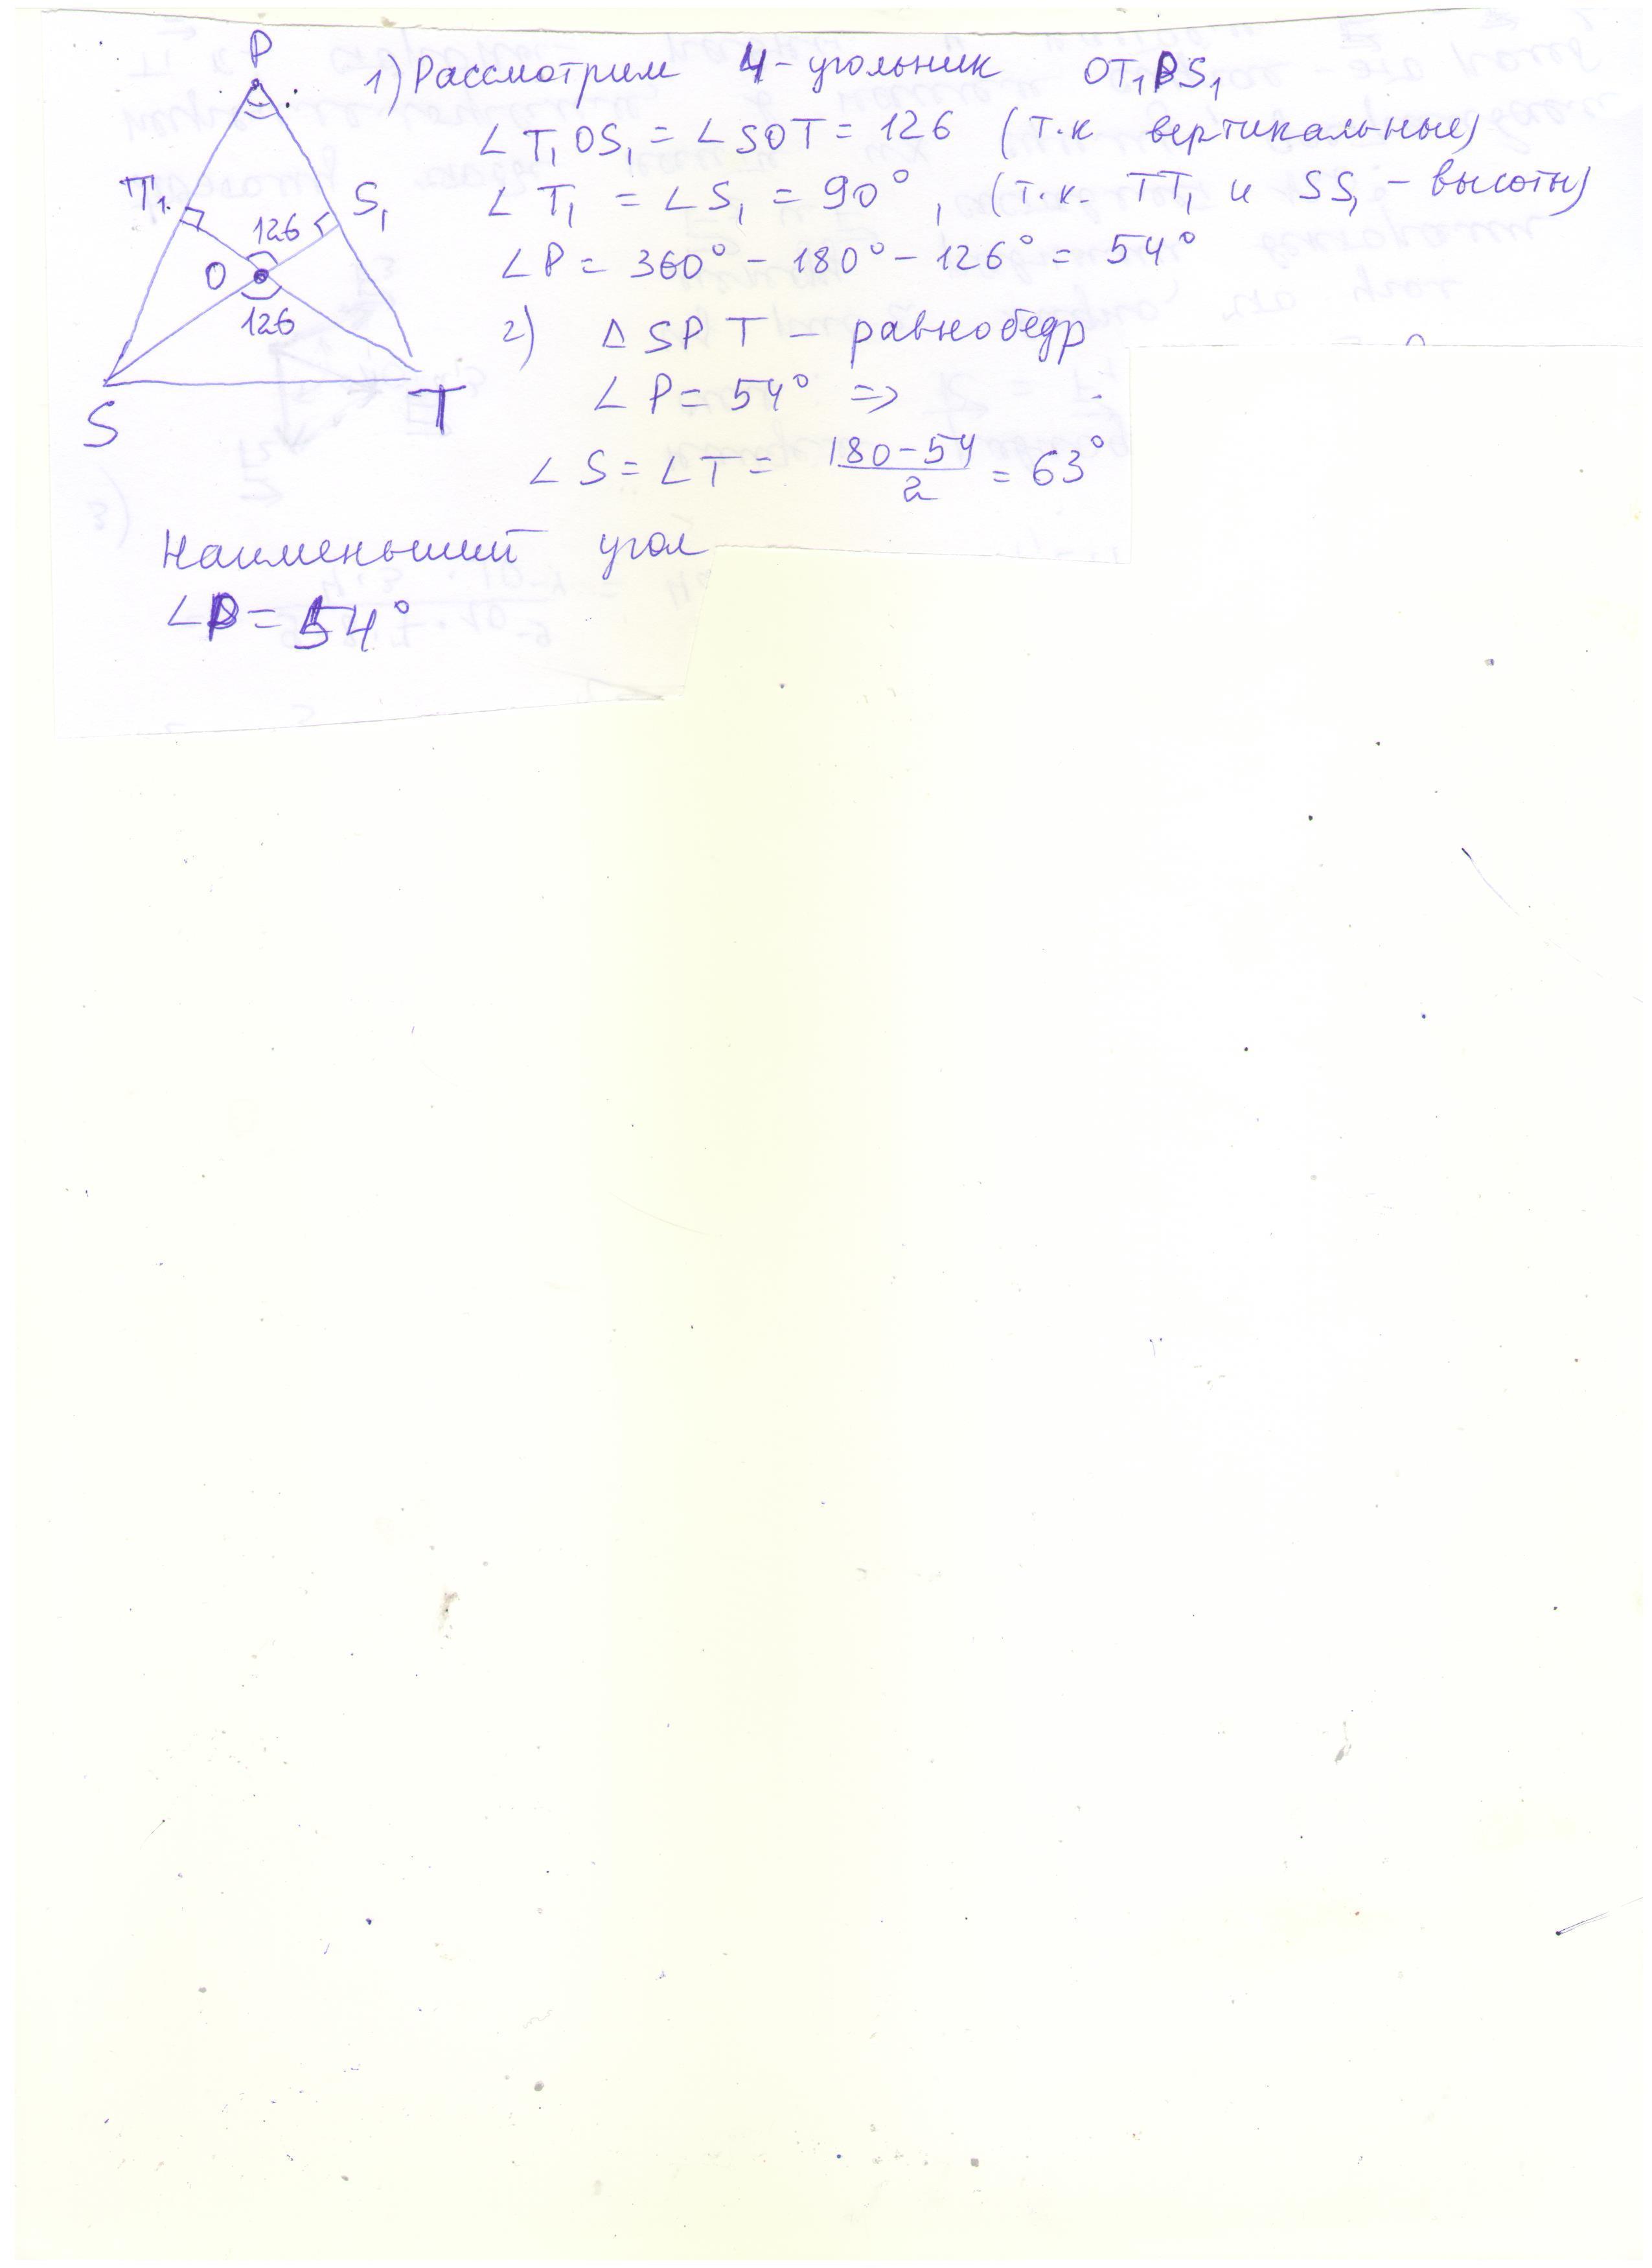 P
1) Рассмотрим 4-угольник OT₁PS₁
∠T₁OS₁ = ∠SOT = 126 (т.к вертикальные)
T₁ S₁
∠T₁ = ∠S₁ = 90°, (т.к. TT₁ и SS₁ - высоты)
126
∠P = 360° - 180° - 126° = 54°
O
126
2) ΔSPT - равнобедр
S T
∠P = 54° =>
∠S = ∠T = (180-54)/2 = 63°
Наименьший угол
∠P = 54°